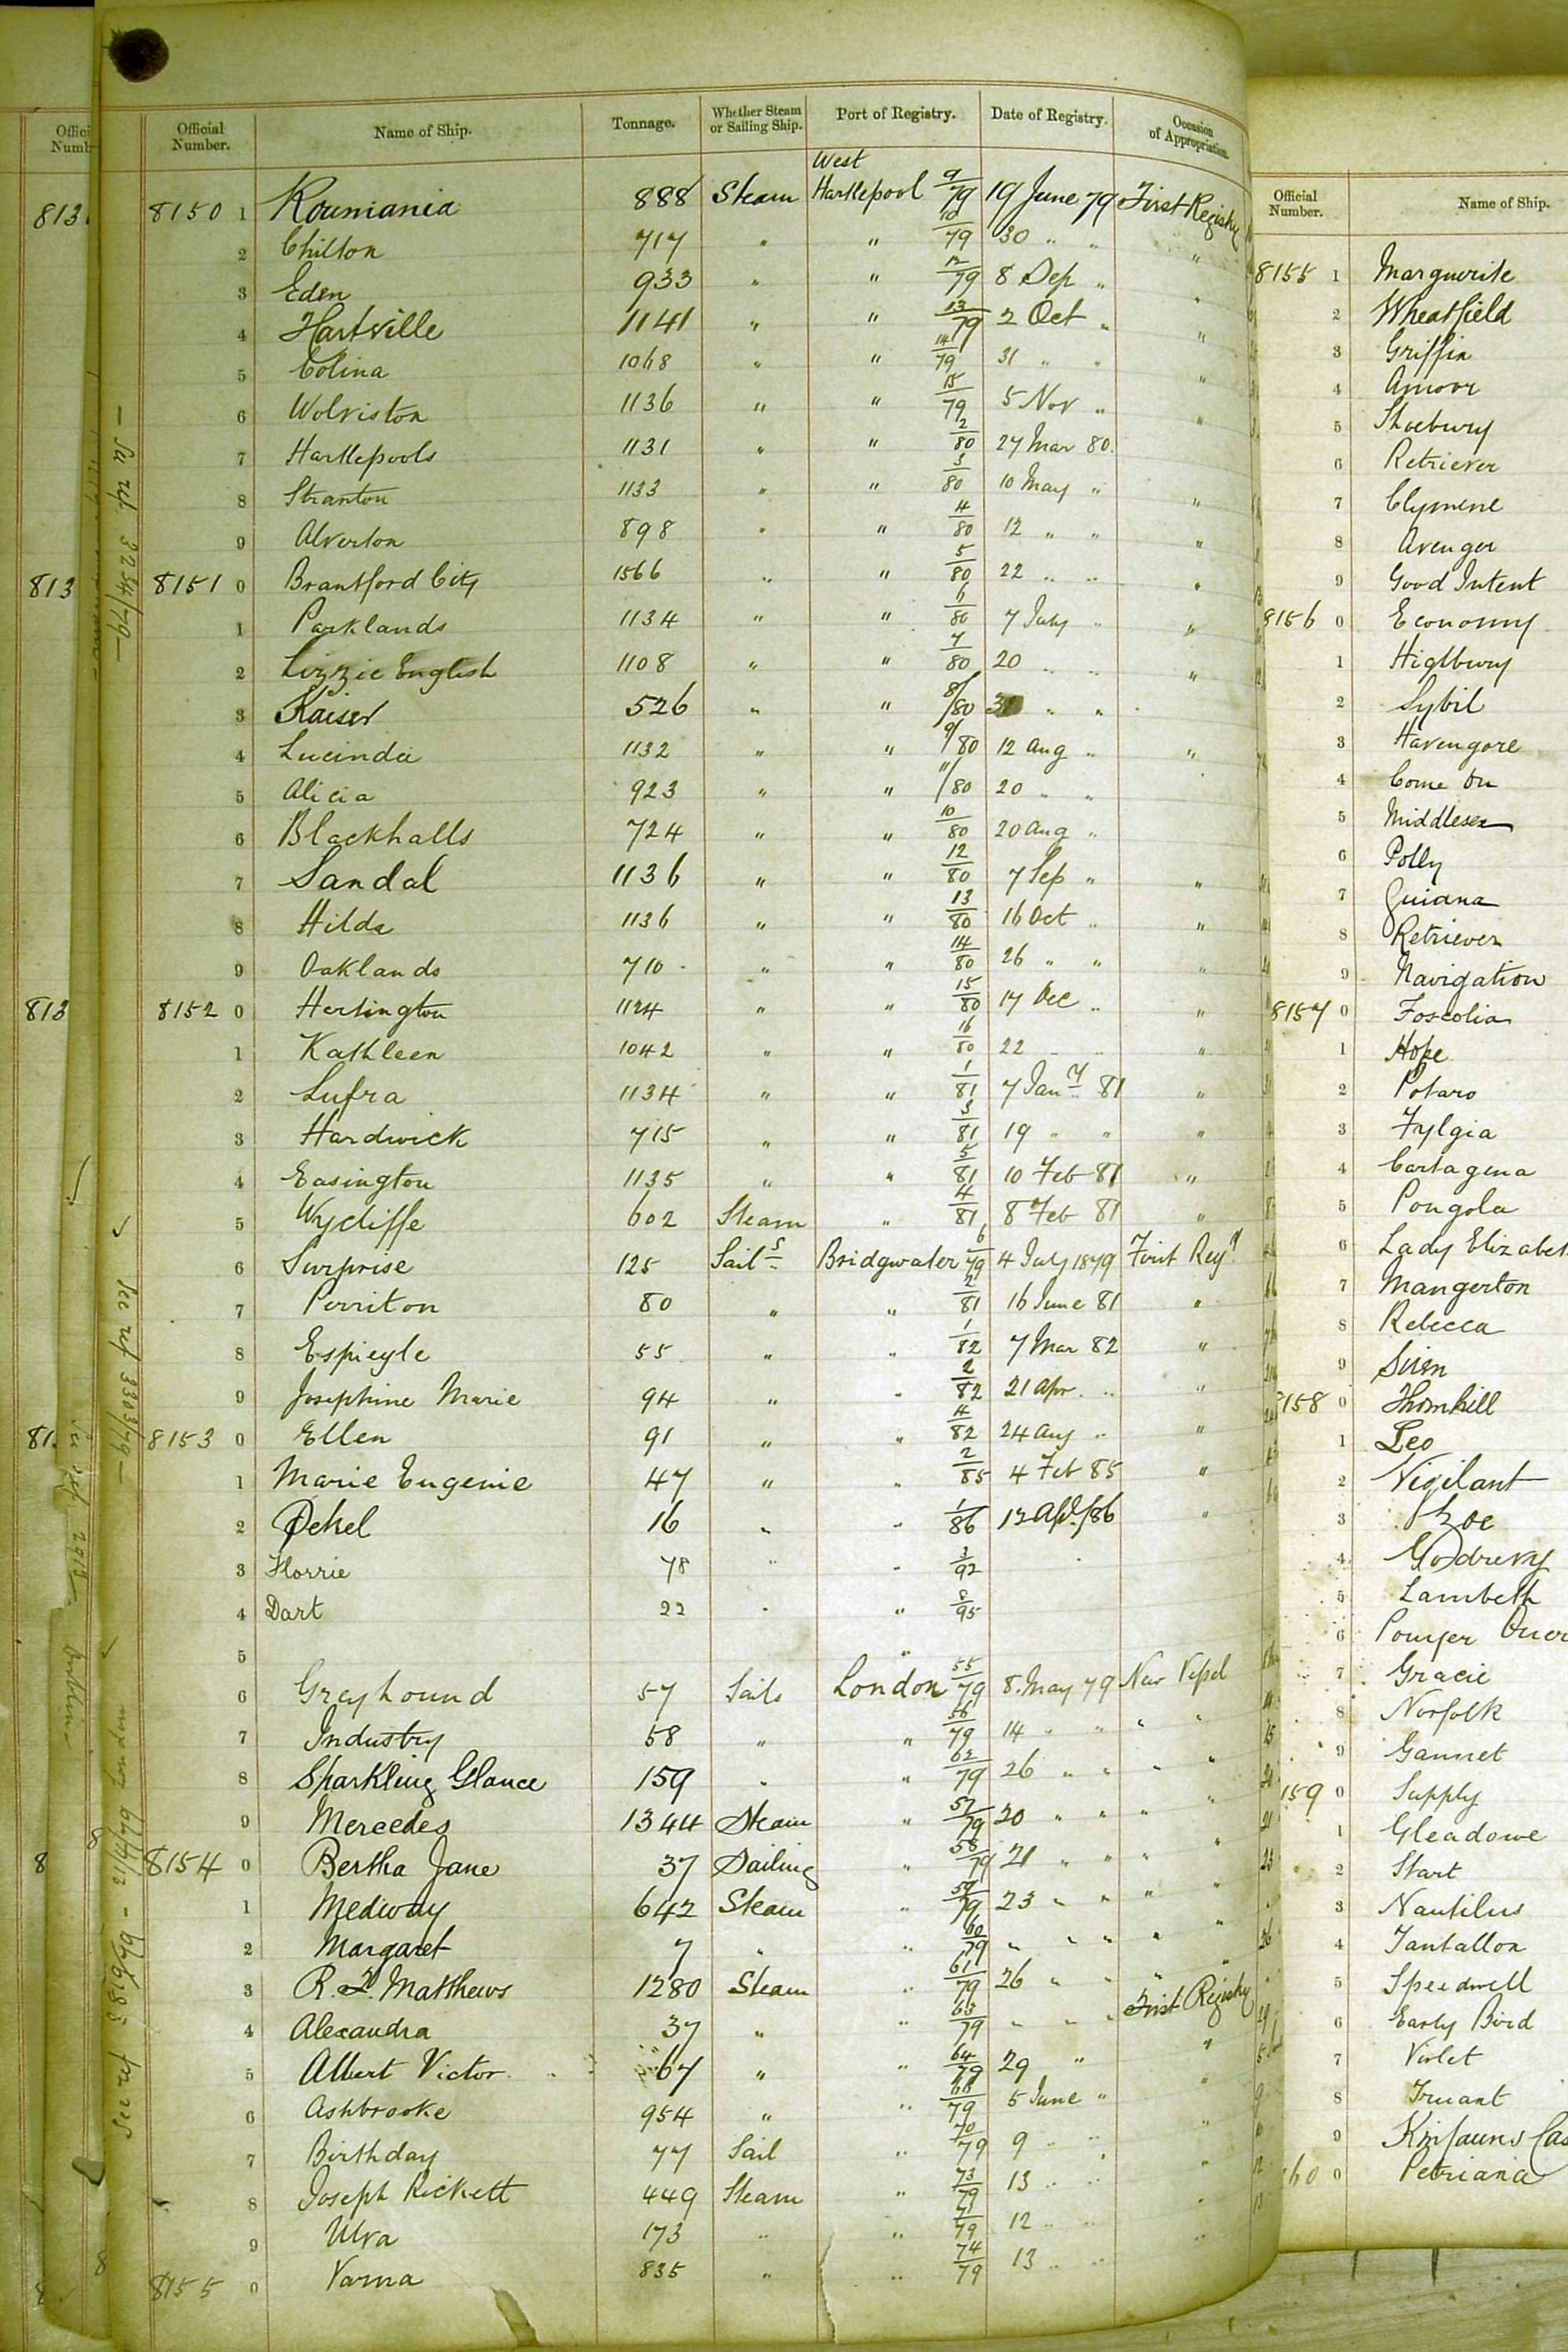 Official Number. Name of Ship. Tonnage. Whether Steam or Sailing Ship. Port of Registry. Date of Registry. Occasion of Appropriation.
West
8150 1 Roumania 888 Steam Hartlepool 9/79 19 June 79 First Registry
2 Chilton 717 " " 10/79 30 " " "
3 Eden 933 " " 12/79 8 Sep " "
4 Hartville 1141 " " 13/79 2 Oct " "
5 Colina 1068 " " 14/79 31 " " "
6 Wolviston 1136 " " 15/79 5 Nov " "
7 Hartlepools 1131 " " 2/80 27 Mar 80.
8 Stranton 1133 " " 3/80 10 May " "
9 Alverton 898 " " 4/80 12 " " "
8151 0 Brantford City 1566 " " 5/80 22 " " "
1 Parklands 1134 " " 6/80 7 July " "
2 Lizzie English 1108 " " 7/80 20 " " "
3 Kaiser 526 " " 8/80 " "
4 Lucinda 1132 " " 9/80 12 Aug " "
5 Alicia 923 " " 11/80 20 " "
6 Blackhalls 724 " " 10/80 20 Aug "
7 Sandal 1136 " " 12/80 7 Sep " "
8 Hilda 1136 " " 13/80 16 Oct " "
9 Oaklands 710 " " 14/80 26 " " "
8152 0 Hertington 1124 " " 15/80 17 Dec " "
1 Kathleen 1042 " " 16/80 22 " " "
2 Lufra 1134 " " 1/81 7 Jany 81 "
3 Hardwick 715 " " 3/81 19 " " "
4 Easington 1135 " " 5/81 10 Feb 81 "
5 Wycliffe 602 Steam " 4/81 8 Feb 81 "
6 Surprise 125 Sails Bridgwater 6/79 4 July 1879 First Regy
7 Perriton 80 " " 2/81 16 June 81 "
8 Espiegle 55 " " 1/82 7 Mar 82 "
9 Josephine Marie 94 " " 2/82 21 Apr. " "
8153 0 Ellen 91 " " 4/82 24 Aug " "
1 Marie Eugenie 47 " " 2/85 4 Feb 85 "
2 16 " " 1/86 "
3 Florrie 78 " " 3/92
4 Dart 22 " " 8/95
5 "
6 Greyhound 57 Sails London 55/79 8. May 79 New Vessel
7 Industry 58 " " 56/79 14 " " " "
8 Sparkling Glance 159 " " 62/79 26 " " " "
9 Mercedes 1344 Steam " 57/79 20 " " " "
8154 0 Bertha Jane 37 Sailing " 58/79 21 " " " "
1 Medway 642 Steam " 59/79 23 " " " "
2 Margaret 7 " " 60/79 " " " " "
3 R. F. Matthews 1280 Steam " 61/79 26 " " " "
4 Alexandra 37 " " 63/79 " " " First Registry
5 Albert Victor 67 " " 64/79 29 " "
6 Ashbrooke 954 " " 79 5 June " "
7 Birthday 77 Sail " 70/79 9 " " "
8 Joseph Rickett 449 Steam " 73/79 13 " " "
9 Ulva 173 " " 71/79 12 " " "
8155 0 Varna 835 " " 74/79 13 " " "
See ref 3234/79
See ref 3303/79
See ref 3819/79 - 21/4/79 London
Official Number. Name of Ship.
8155 1 Marguerite
2 Wheatfield
3 Griffin
4 Amoor
5 Shoebury
6 Retriever
7 Clymene
8 Avenger
9 Good Intent
8156 0 Economy
1 Highbury
2 Sybil
3 Havengore
4 Come On
5 Middlesex
6 Polly
7 Guiana
8 Retriever
9 Navigation
8157 0 Foscolia
1 Hope
2 Potaro
3 Fylgia
4 Cartagena
5 Pongola
6 Lady Elizabet
7 Mangerton
8 Rebecca
9 Siren
8158 0 Thornhill
1 Leo
2 Vigilant
3 Zoe
4 Godrevy
5 Lambeth
6
7 Gracie
8 Norfolk
9 Gannet
159 0 Supply
1 Gleadowe
2 Start
3 Nautilus
4 Tantallon
5 Speedwell
6 Early Bird
7 Violet
8 Truant
9 Kinfauns Cas
160 0 Petriana